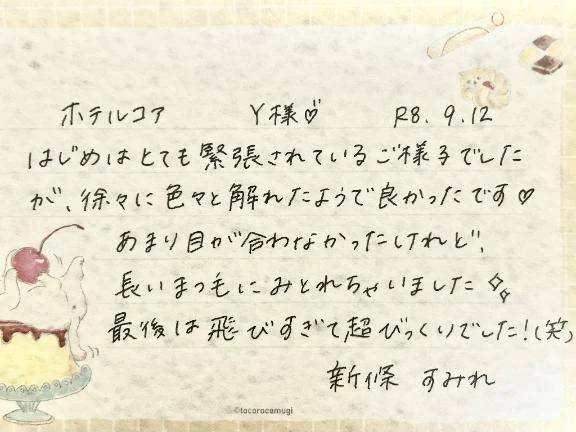 ホテルコア Y様♡ R8.9.12
はじめはとても緊張されているご様子でした
が、徐々に色々と解れたようで良かったです♡
あまり目が合わなかったけれど、
長いまつ毛にみとれちゃいました✧
最後は飛びすぎて超びっくりでした!(笑)
新條 すみれ
©tocorocomugi